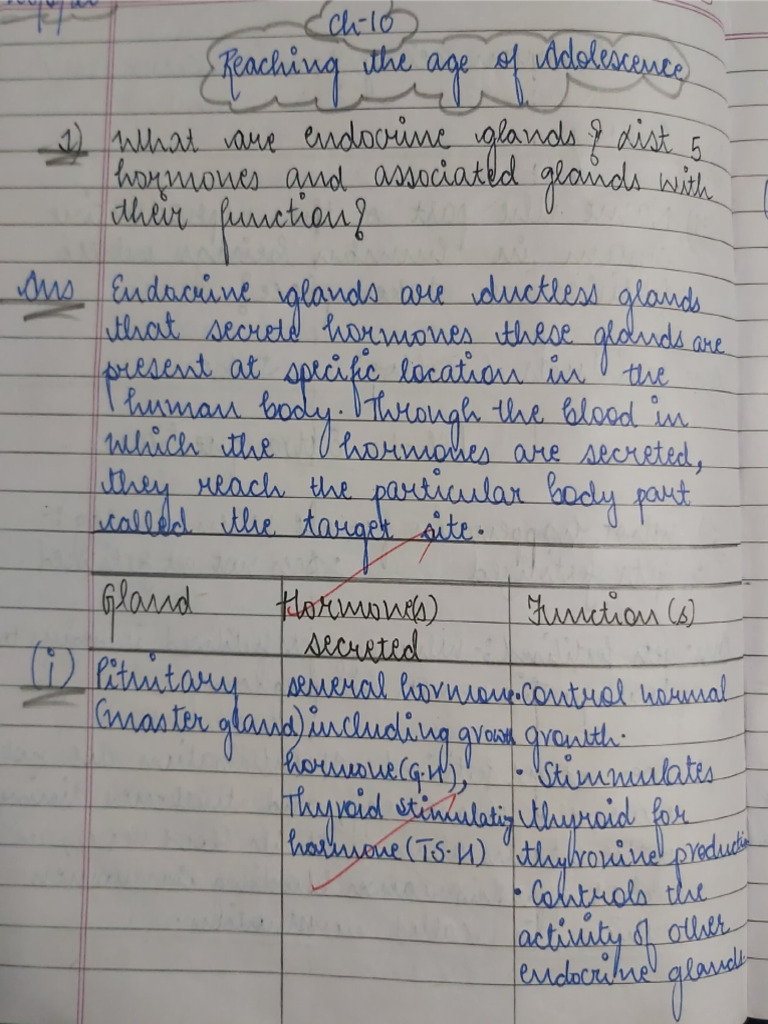 Ch-10
Reaching the age of Adolescence
1) What are endocrine glands? List 5
hormones and associated glands with
their function?
Ans Endocrine glands are ductless glands
that secrete hormones these glands are
present at specific location in the
human body. Through the blood in
which the hormones are secreted,
they reach the particular body part
called the target site.
Gland Hormone(s) Function(s)
secreted
(i) Pituitary several hormone •control normal
(master gland) including growth growth.
hormone(G.H), • Stimmulates
Thyroid stimulating thyroid for
hormone(T.S.H) thyronine production
• Controls the
activity of other
endocrine glands